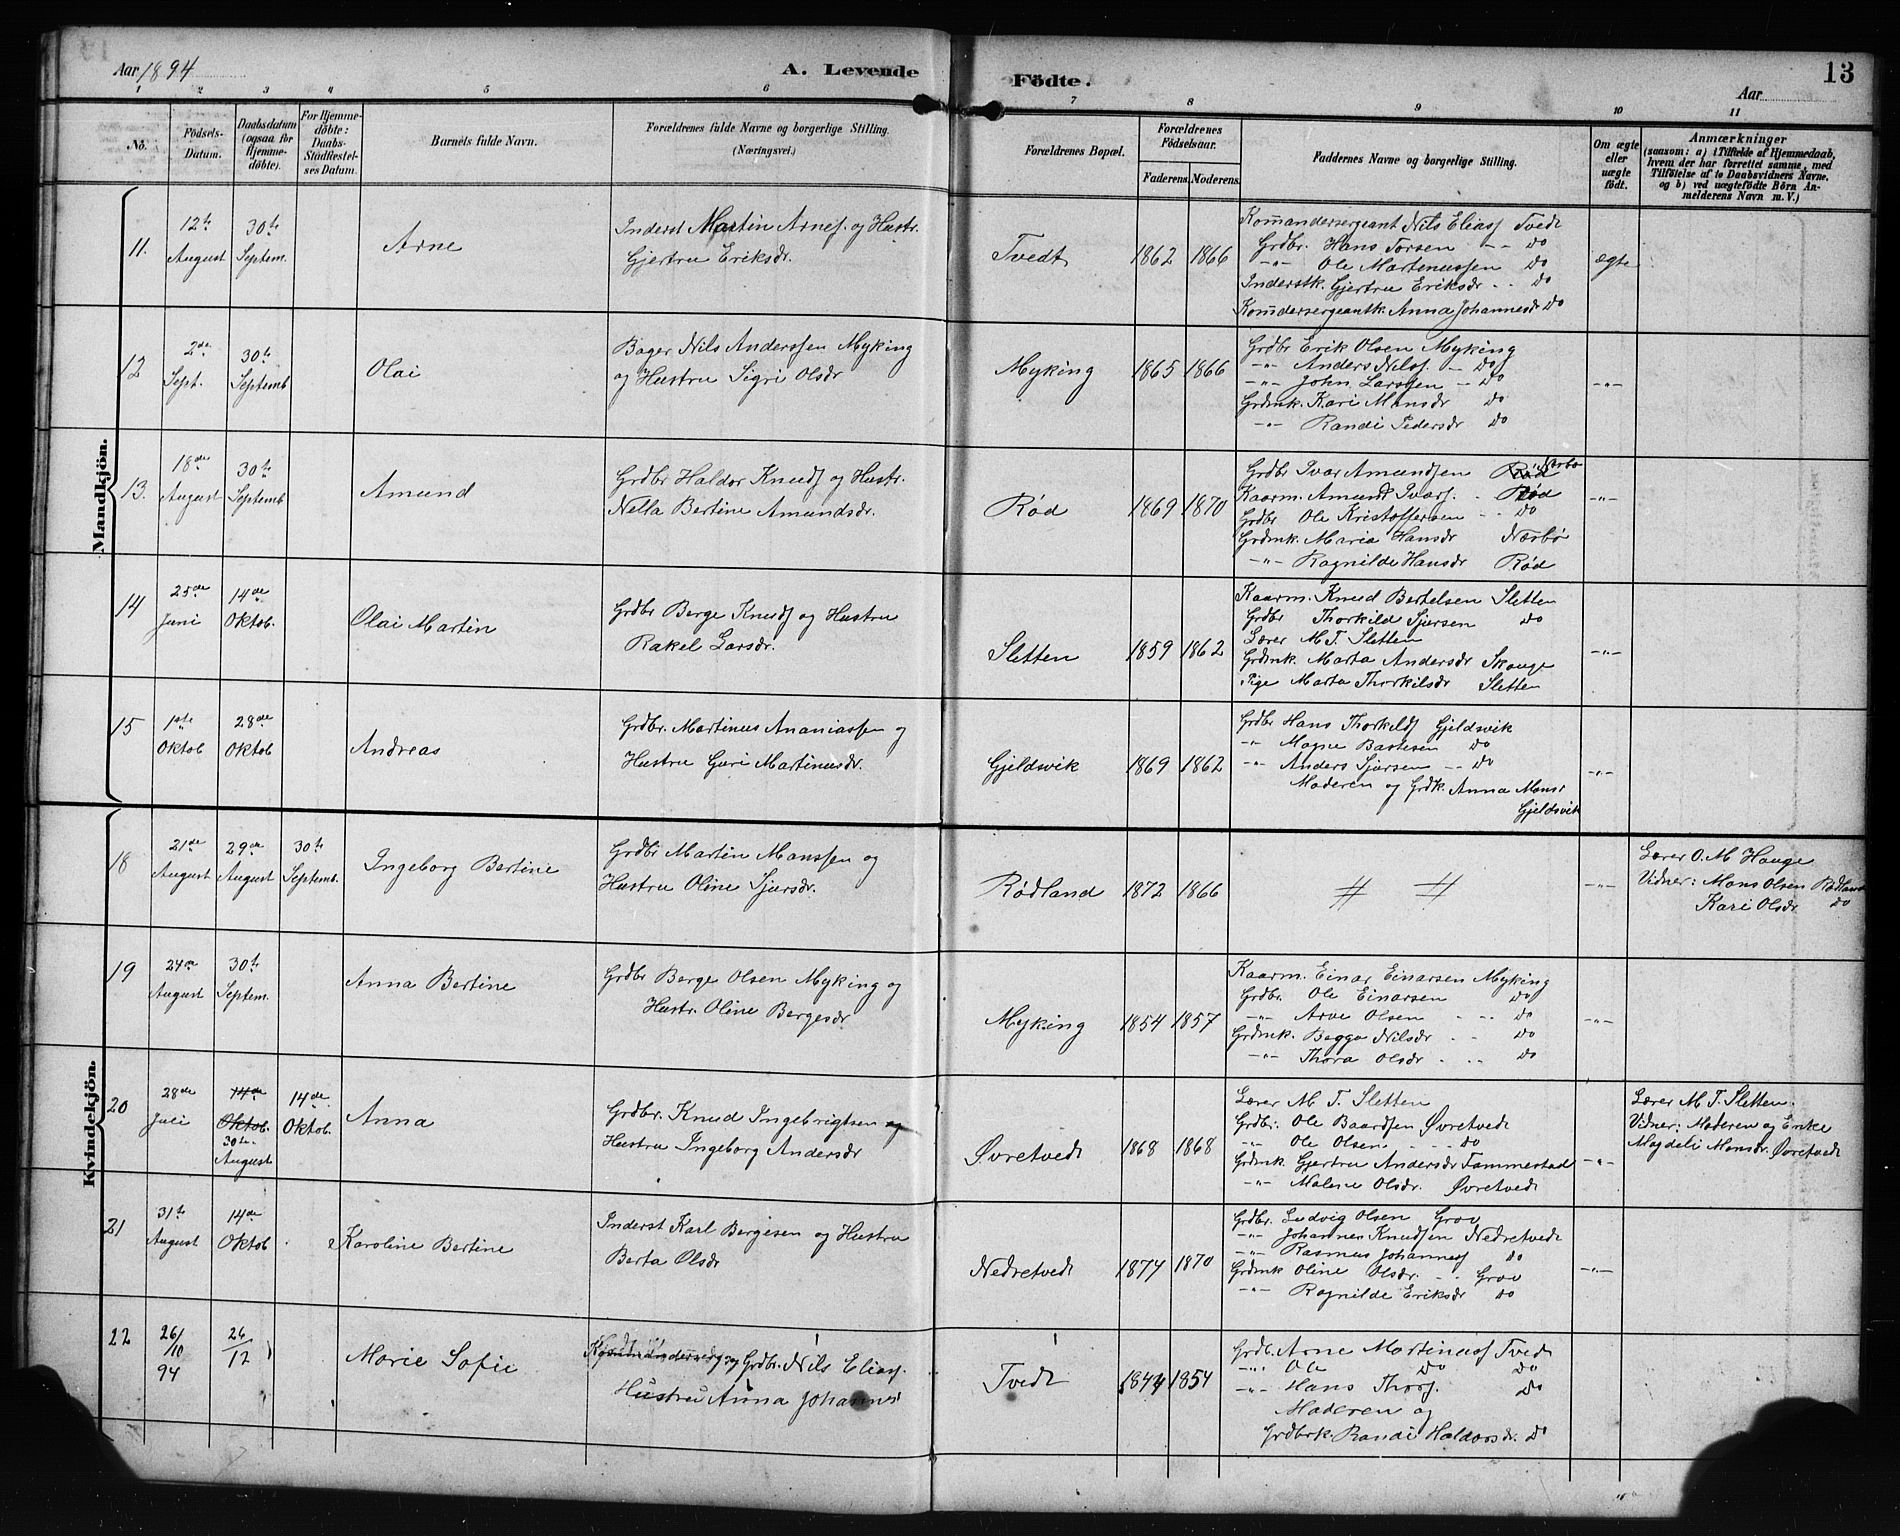 Aar 1894
A. Levende
Födte.
Aar
13
1 2 3 4 5 6 7 8 9 10 11
No.
Födsels-Datum.
Daabsdatum (ogsaa for Hjemmedöbte).
For Hjemmedöbte: Daabs-Stadfæstelses Datum.
Barnets fulde Navn.
Forældrenes fulde Navne og borgerlige Stilling. (Næringsvei.)
Forældrenes Bopæl.
Forældrenes Födselsaar.
Faderens. Moderens.
Faddernes Navne og borgerlige Stilling.
Om ægte eller uægte födt.
Anmærkninger
(saasom: a) i Tilfælde af Hjemmedaab, hvem der har forrettet samme, med Tilföielse af to Daabsvidners Navne, og b) ved uægtefödte Börn Anmelderens Navn m. V.)
Mandkjön.
11. 12te August 30te Septem. Arne
Inderst Martin Arnes. og Hustr.
Gjertru Eriksdr.
Tvedt 1862 1866
Kommandersergeant Nils Eliass Tvedt
Grdbr. Hans Torsen -- Do
-"- Ole Martinussen Do
Inderstk. Gjertru Eriksdr -- Do
Komdersergeantk. Anna Johannesdr Do
ægte
12 2den Sept. 30te Septemb Olai
Bager Nils Anderssen Myking
og Hustru Sigri Olsdr
Myking 1865 1866
Grdbr Erik Olsen Myking
-"- Anders Nilss. - Do
-"- John Larssen - Do
Grdmk. Kari Monsdr Do
-"- Randi Pedersdr Do
-"-
13. 18de August 30te Septemb Amund
Grdbr Haldor Knuds og Hustr.
Nella Bertine Amundsdr.
Rød 1869 1870
Grdbr Ivar Amundsen Nærbø
Kaarm. Amund Ivars. Rød
Grdbr Ole Kristoffersen -- Do
Grdmk. Maria Hansdr Nærbø
-"- Ragnilde Hansdr Rød
-"-
14 25de Juni 14de Oktob. Olai Martin
Grdbr Berge Knuds og Hustru
Rakel Larsdr.
Sletten 1859 1862
Kaarm. Knud Bertelsen Sletten
Grdbr Thorkild Sjursen Do
Lærer M. T. Sletten
Grdmk. Marta Andersdr Skauge
Pige Marta Thorkilsdr Sletten
-"-
15 1ste Oktob 28de Oktob Andreas
Grdbr. Martinus Ananiassen og
Hustru Guri Martinusdr.
Gjeldsvik 1869 1862
Grdbr Hans Thorkilds Gjeldsvik
-"- Mogne Bastesen Do
-"- Anders Sjursen -- Do
Moderen og Grdk. Anna Mons.
Gjeldsvik
-"-
Kvindekjön.
18 21de August 29de August 30te Septemb. Ingeborg Bertine
Grdbr Martin Monssen og
Hustru Oline Sjursdr.
Rødland 1872 1866
# #
-"-
Lærer O. M Hauge
Vidner: Mons Olsen Rødland
Kari Olsdr. Do
19 24de August 30te Septem. Anna Bertine
Grdbr Berge Olsen Myking og
Hustr. Oline Bergesdr
Myking 1854 1857
Kaarm. Einar Einarsen Myking
Grdbr. Ole Einarsen Do
-"- Arve Olsen -- Do
Grdmk. Bagga Nilsdr -- Do
-"- Thora Olsdr -- Do
-"-
20 28de Juli 14de Oktob. 30te August 14de Oktob. Anna
Grdbr. Knud Ingebrigtsen og
Hustru Ingeborg Andersdr
Øvretvedt 1868 1868
Lærer M. T. Sletten
Grdbr. Ole Baardsen Øvretvedt
-"- Ole Olsen -- Do
Grdmk Gjertru Andersdr Tammestad
-"- Malene Olsdr. Øvretvedt
-"-
Lærer M. T. Sletten.
Vidner: Moderen og Enke
Magdeli Monsdr. Øvretvedt
21 31te August 14de Oktob Karoline Bertine
Inderst Karl Bergesen og Hustru
Berta Olsdr
Nedretvedt 1874 1870
Grdbr. Ludvig Olsen Grov
-"- Johannes Knudsen Nedretvedt
-"- Rasmus Johanness Do
Grdmk Oline Olsdr. -- Grov
-"- Ragnilde Eriksdr Do
-"-
22 26/10 94 26/12 Marie Sofie
Grdbr. Nils Eliass.
Hustru Anna Johannes
Tvedt 1844 1854
Grdb. Arne Martinuss Tvedt
-"- Ole Do Do
-"- Hans Thorss. Do
Moderen og
Grdbrk. Randi Haldorsdr. Do